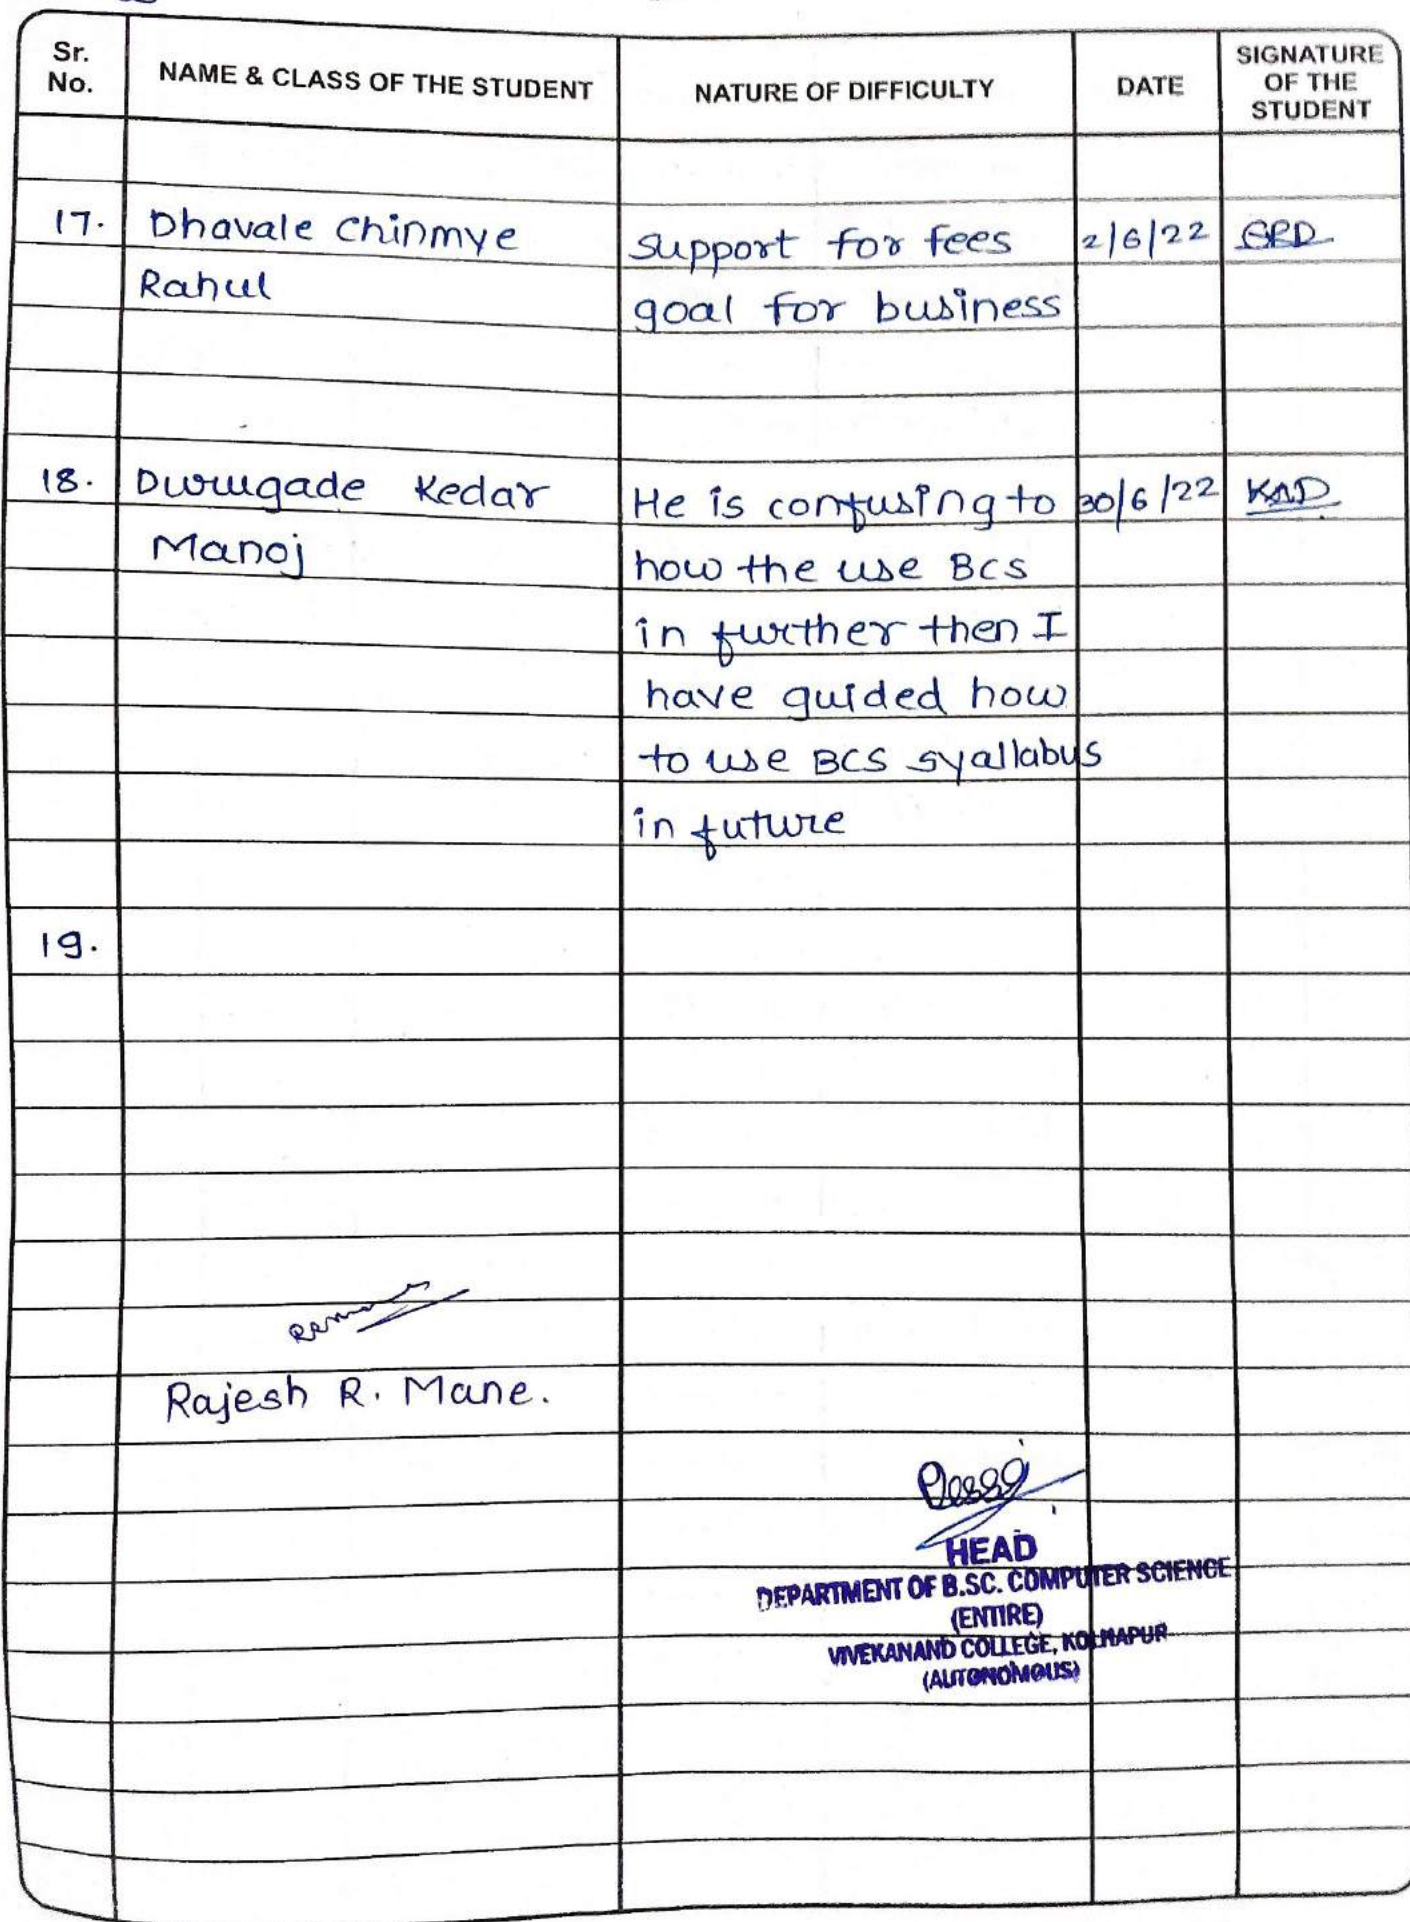 Sr. No.
NAME & CLASS OF THE STUDENT
NATURE OF DIFFICULTY
DATE
SIGNATURE OF THE STUDENT
17. Dhavale Chinmye support for fees 2/6/22
Rahul goal for business
18. Durugade Kedar He is confusing to 30/6/22 KAD
Manoj how the use BCS
in further then I
have guided how
to use BCS syallabus
in future
19.
Rajesh R. Mane.
HEAD
DEPARTMENT OF B.SC. COMPUTER SCIENCE
(ENTIRE)
VIVEKANAND COLLEGE, KOLHAPUR
(AUTONOMOUS)